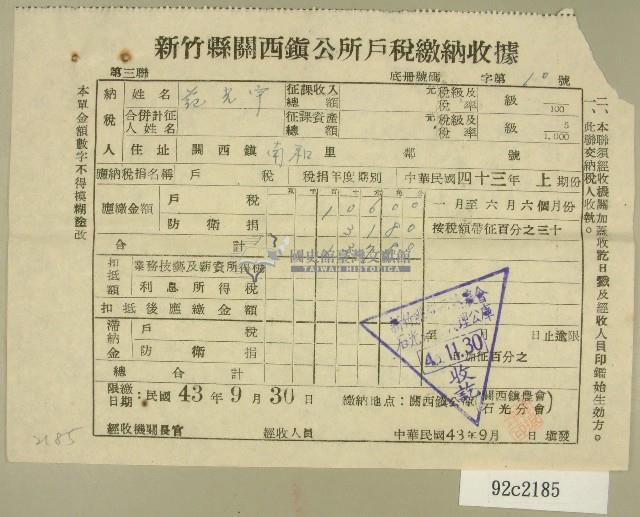 新竹縣關西鎭公所戶稅繳納收據
第三聯 底册號碼 字第 號
納稅人 姓名 范光宇 征課收入總額 元 稅級及稅率 級 100
合併計征人姓名 征課資產總額 元 稅級及稅率 5 1,000
住址 關西鎭 南和 里 鄰 號
應納稅捐名稱 戶 稅 稅捐年度期別 中華民國四十三年 上 期份
應繳金額 戶 稅 10600 一月至六月六個月份
防衛捐 3180 按稅額帶征百分之三十
合 計
扣抵額 業務技藝及薪資所得稅
利息所得稅
扣抵後應繳金額
滯納金 戶 稅 至 月 日止逾限
防衛捐 征百分之
總 合 計
限繳日期:民國 43 年 9 月 30 日 繳納地点:關西鎭公庫(關西鎭農會石光分會)
經收機關長官 經收人員 中華民國43年9月 日塡發
本單金額數字不得模糊塗改
二、本聯須經收機關加蓋收訖日戳及經收人員印鑑始生効方。
此聯交納稅人收執。
國史館臺灣文獻館
TAIWAN HISTORICA
代理公庫
11.30
收訖
2185
92c2185